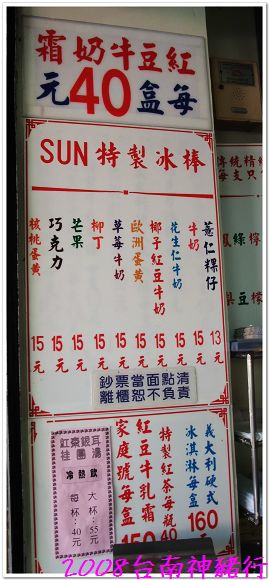 紅豆牛奶霜
每盒40元
SUN 特製冰棒
薏仁粿仔 13元
牛奶 15元
花生仁牛奶 15元
椰子紅豆牛奶 15元
歐洲蛋黃 15元
草莓牛奶 15元
柳丁 15元
芒果 15元
巧克力 15元
核桃蛋黃 15元
鈔票當面點清
離櫃恕不負責
義大利硬式
冰淇淋每盒
160元
特製紅茶每瓶
40元
紅豆牛乳霜
家庭號每盒
150
紅棗銀耳
桂圓湯
冷熱飲
大杯:55元
每杯:40元
2008台南神豬行